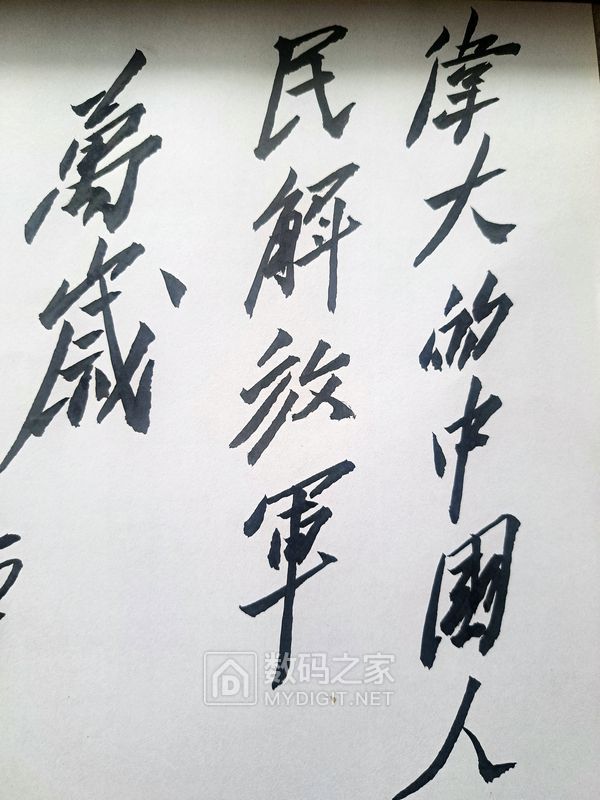 偉大的中國人
民解放軍
萬歲
数码之家
MYDIGIT.NET